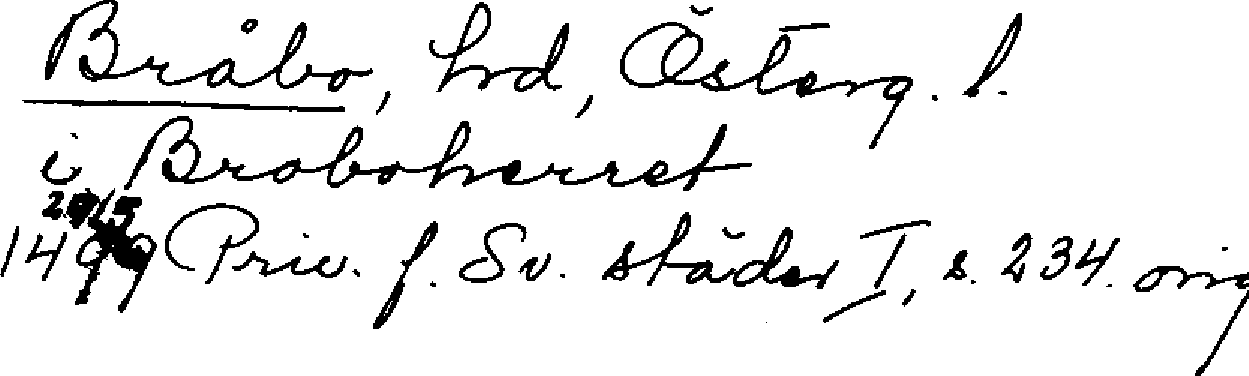 Bråbo, hrd, Österg. l.
i Broboherret
29/5
1499 Priv. f. Sv. städer I, s. 234. orig